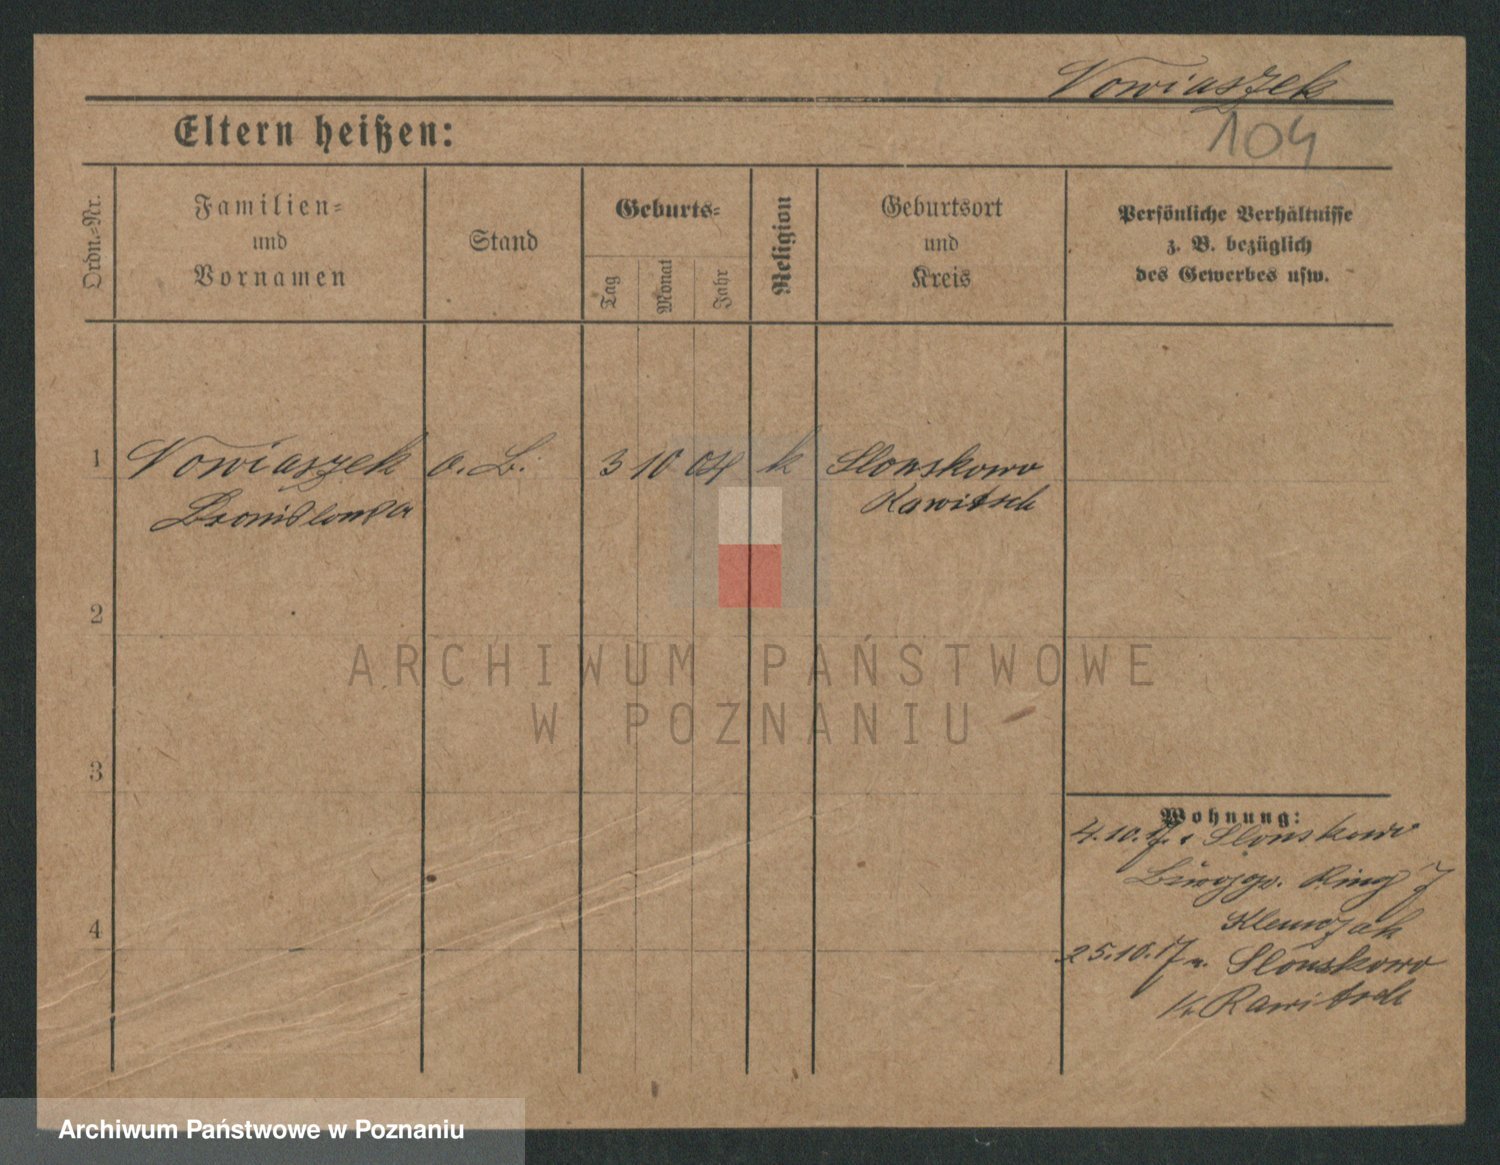 Nowiaszek
Eltern heißen:
104
Ordn.=Nr.
Familien=
und
Vornamen
Stand
Geburts=
Tag
Monat
Jahr
Religion
Geburtsort
und
Kreis
Persönliche Verhältnisse
z. B. bezüglich
des Gewerbes usw.
1 Nowiaszek o. B. 3 10 04 k Slonskowo
Bronislowa Rawitsch
2
ARCHIWUM PAŃSTWOWE
W POZNANIU
3
Wohnung:
4.10.17. Slonskowo
Ring 7
4
Klemczak
25.10.17 n. Slonskowo
Kr Rawitsch
Archiwum Państwowe w Poznaniu